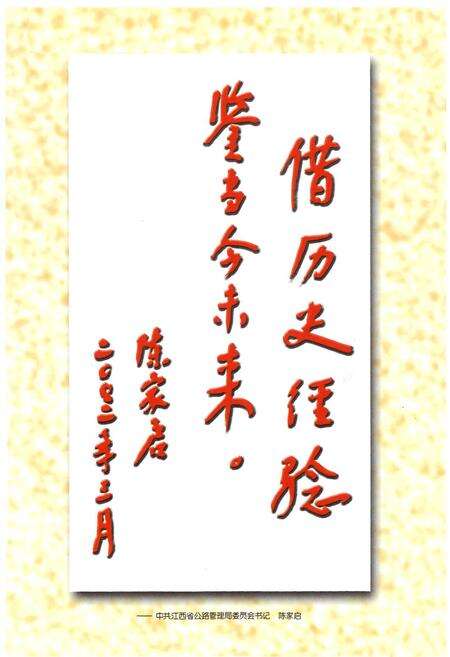 借历史经验
鉴当今未来。
陈家启
二〇〇三年三月
—— 中共江西省公路管理局委员会书记 陈家启